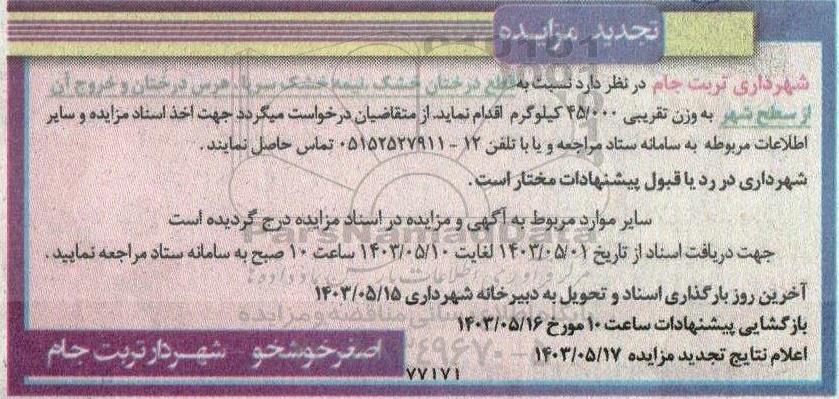 تجدید مزایده
شهرداری تربت جام در نظر دارد نسبت به قطع درختان خشک ،نیمه خشک، سرپا، هرس درختان و خروج آن
از سطح شهر به وزن تقریبی ۴۵/۰۰۰ کیلوگرم اقدام نماید. از متقاضیان درخواست میگردد جهت اخذ اسناد مزایده و سایر
اطلاعات مربوطه به سامانه ستاد مراجعه و یا با تلفن ۱۲ - ۰۵۱۵۲۵۲۷۹۱۱ تماس حاصل نمایند .
شهرداری در رد یا قبول پیشنهادات مختار است .
سایر موارد مربوط به آگهی و مزایده در اسناد مزایده درج گردیده است
جهت دریافت اسناد از تاریخ ۱۴۰۳/۰۵/۰۱ لغایت ۱۴۰۳/۰۵/۱۰ ساعت ۱۰ صبح به سامانه ستاد مراجعه نمایید .
آخرین روز بارگذاری اسناد و تحویل به دبیرخانه شهرداری ۱۴۰۳/۰۵/۱۵
بازگشایی پیشنهادات ساعت ۱۰ مورخ ۱۴۰۳/۰۵/۱۶
اعلام نتایج تجدید مزایده ۱۴۰۳/۰۵/۱۷
اصغر خوشخو - شهردار تربت جام
۷۷۱۷۱
ParsNamadData